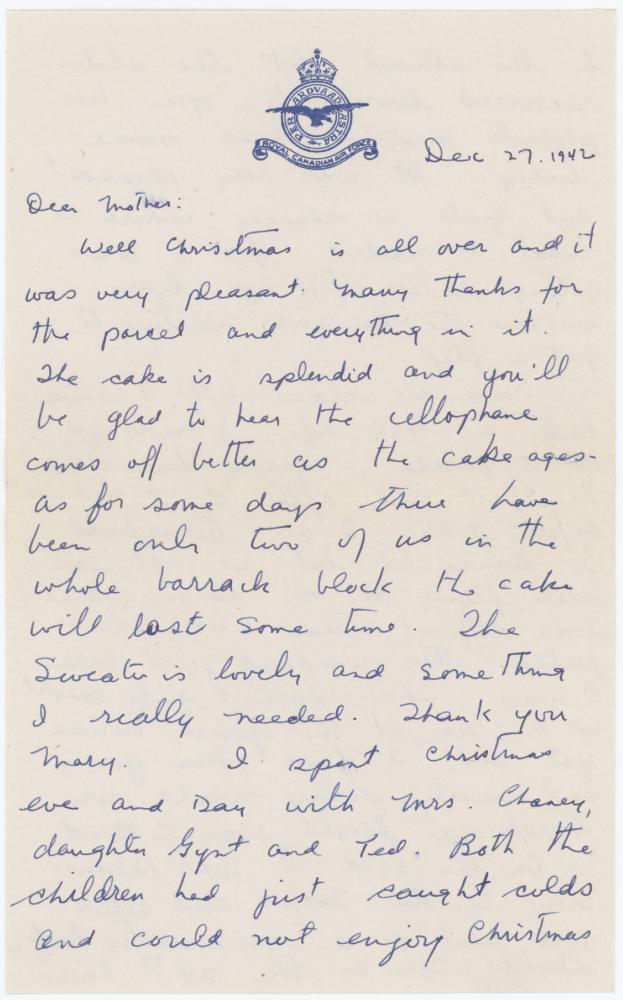 PER ARDUA AD ASTRA
ROYAL CANADIAN AIR FORCE
Dec 27. 1942
Dear Mother:
Well Christmas is all over and it
was very pleasant. Many thanks for
the parcel and everything in it
The cake is splendid and you'll
be glad to hear the cellophane
comes off better as the cake ages-
as for some days there have
been only two of us in the
whole barrack block the cake
will last some time. The
Sweater is lovely and something
I really needed. Thank you
Mary. I spent Christmas
eve and Day with Mrs. Chaney,
daughter and Ted. Both the
children had just caught colds
and could not enjoy Christmas